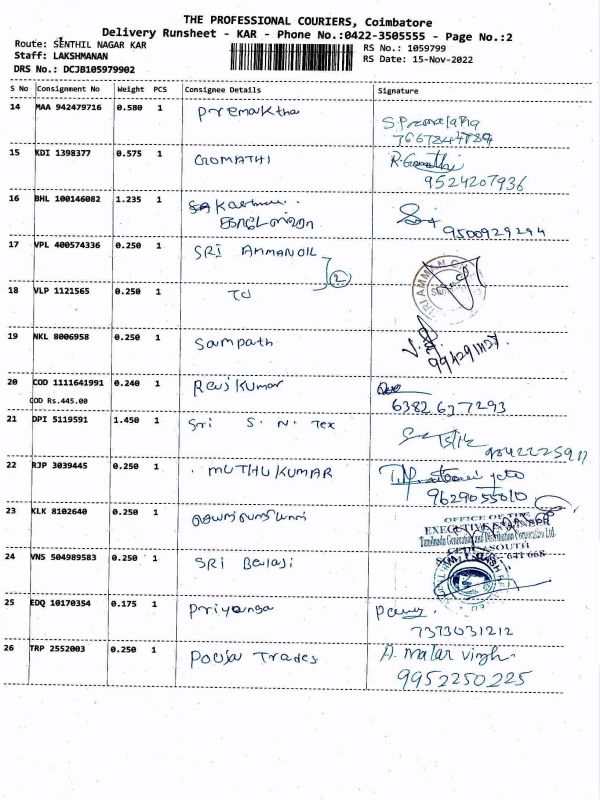 THE PROFESSIONAL COURIERS, Coimbatore
Delivery Runsheet - KAR - Phone No.:0422-3505555 - Page No.:2
Route: SENTHIL NAGAR KAR
Staff: LAKSHMANAN
DRS No.: DCJB105979902
RS No.: 1059799
RS Date: 15-Nov-2022
S No Consignment No Weight PCS Consignee Details Signature
14 MAA 942479716 0.580 1 Premaktha
15 KDI 1398377 0.575 1 GOMATHI
9524207936
16 BHL 100146082 1.235 1
9500929294
17 VPL 400574336 0.250 1 SRI AMMAN OIL
2
18 VLP 1121565 0.250 1 TCI
19 NKL 8006958 0.250 1 Sampath
20 COD 1111641991 0.240 1 Ravikumar
COD Rs.445.00
6382637293
21 DPI 5119591 1.450 1 Sri S. N. Tex
22 RJP 3039445 0.250 1 MUTHUKUMAR
9629055010
23 KLK 8102640 0.250 1
OFFICE OF THE
EXECUTIVE ENGINEER
Tamilnadu Generation and Distribution Corporation Ltd.
SOUTH
24 VNS 504989583 0.250 1 SRI Balaji
25 EDQ 10170354 0.175 1 Priyanga
7373031212
26 TRP 2552003 0.250 1 Pooja Trades A. malar vizhi
9952250225